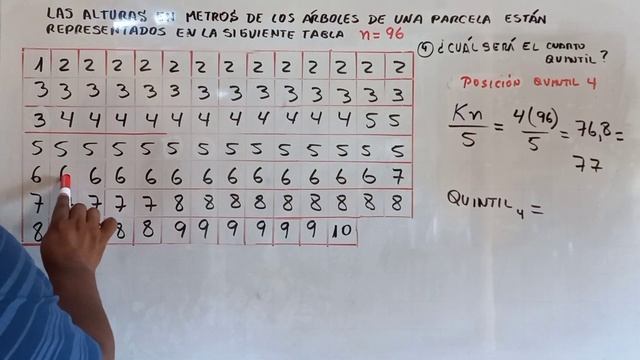 LAS ALTURAS EN METROS DE LOS ÁRBOLES DE UNA PARCELA ESTÁN
REPRESENTADOS EN LA SIGUIENTE TABLA n = 96
1 2 2 2 2 2 2 2 2 2 2 2 2 2
3 3 3 3 3 3 3 3 3 3 3 3 3 3
3 4 4 4 4 4 4 4 4 4 4 4 5 5
5 5 5 5 5 5 5 5 5 5 5 5 5 5
6 6 6 6 6 6 6 6 6 6 6 6 6 7
7 7 7 7 8 8 8 8 8 8 8 8 8
8 8 8 9 9 9 9 9 9 10
④ ¿CUÁL SERÁ EL CUARTO
QUINTIL?
POSICIÓN QUINTIL 4
Kn/5 = 4(96)/5 = 76,8 =
77
QUINTIL 4 =